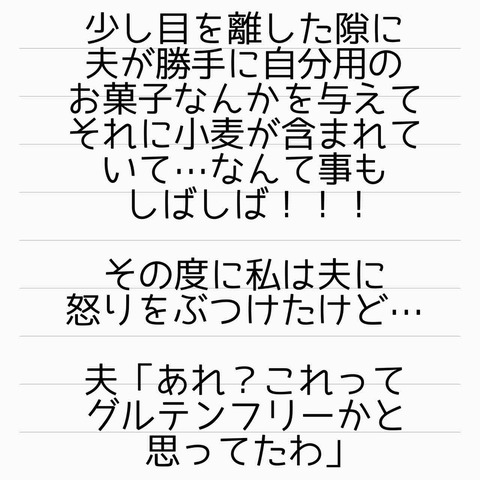 少し目を離した隙に
夫が勝手に自分用の
お菓子なんかを与えて
それに小麦が含まれて
いて…なんて事も
しばしば！！！
その度に私は夫に
怒りをぶつけたけど…
夫「あれ？これって
グルテンフリーかと
思ってたわ」